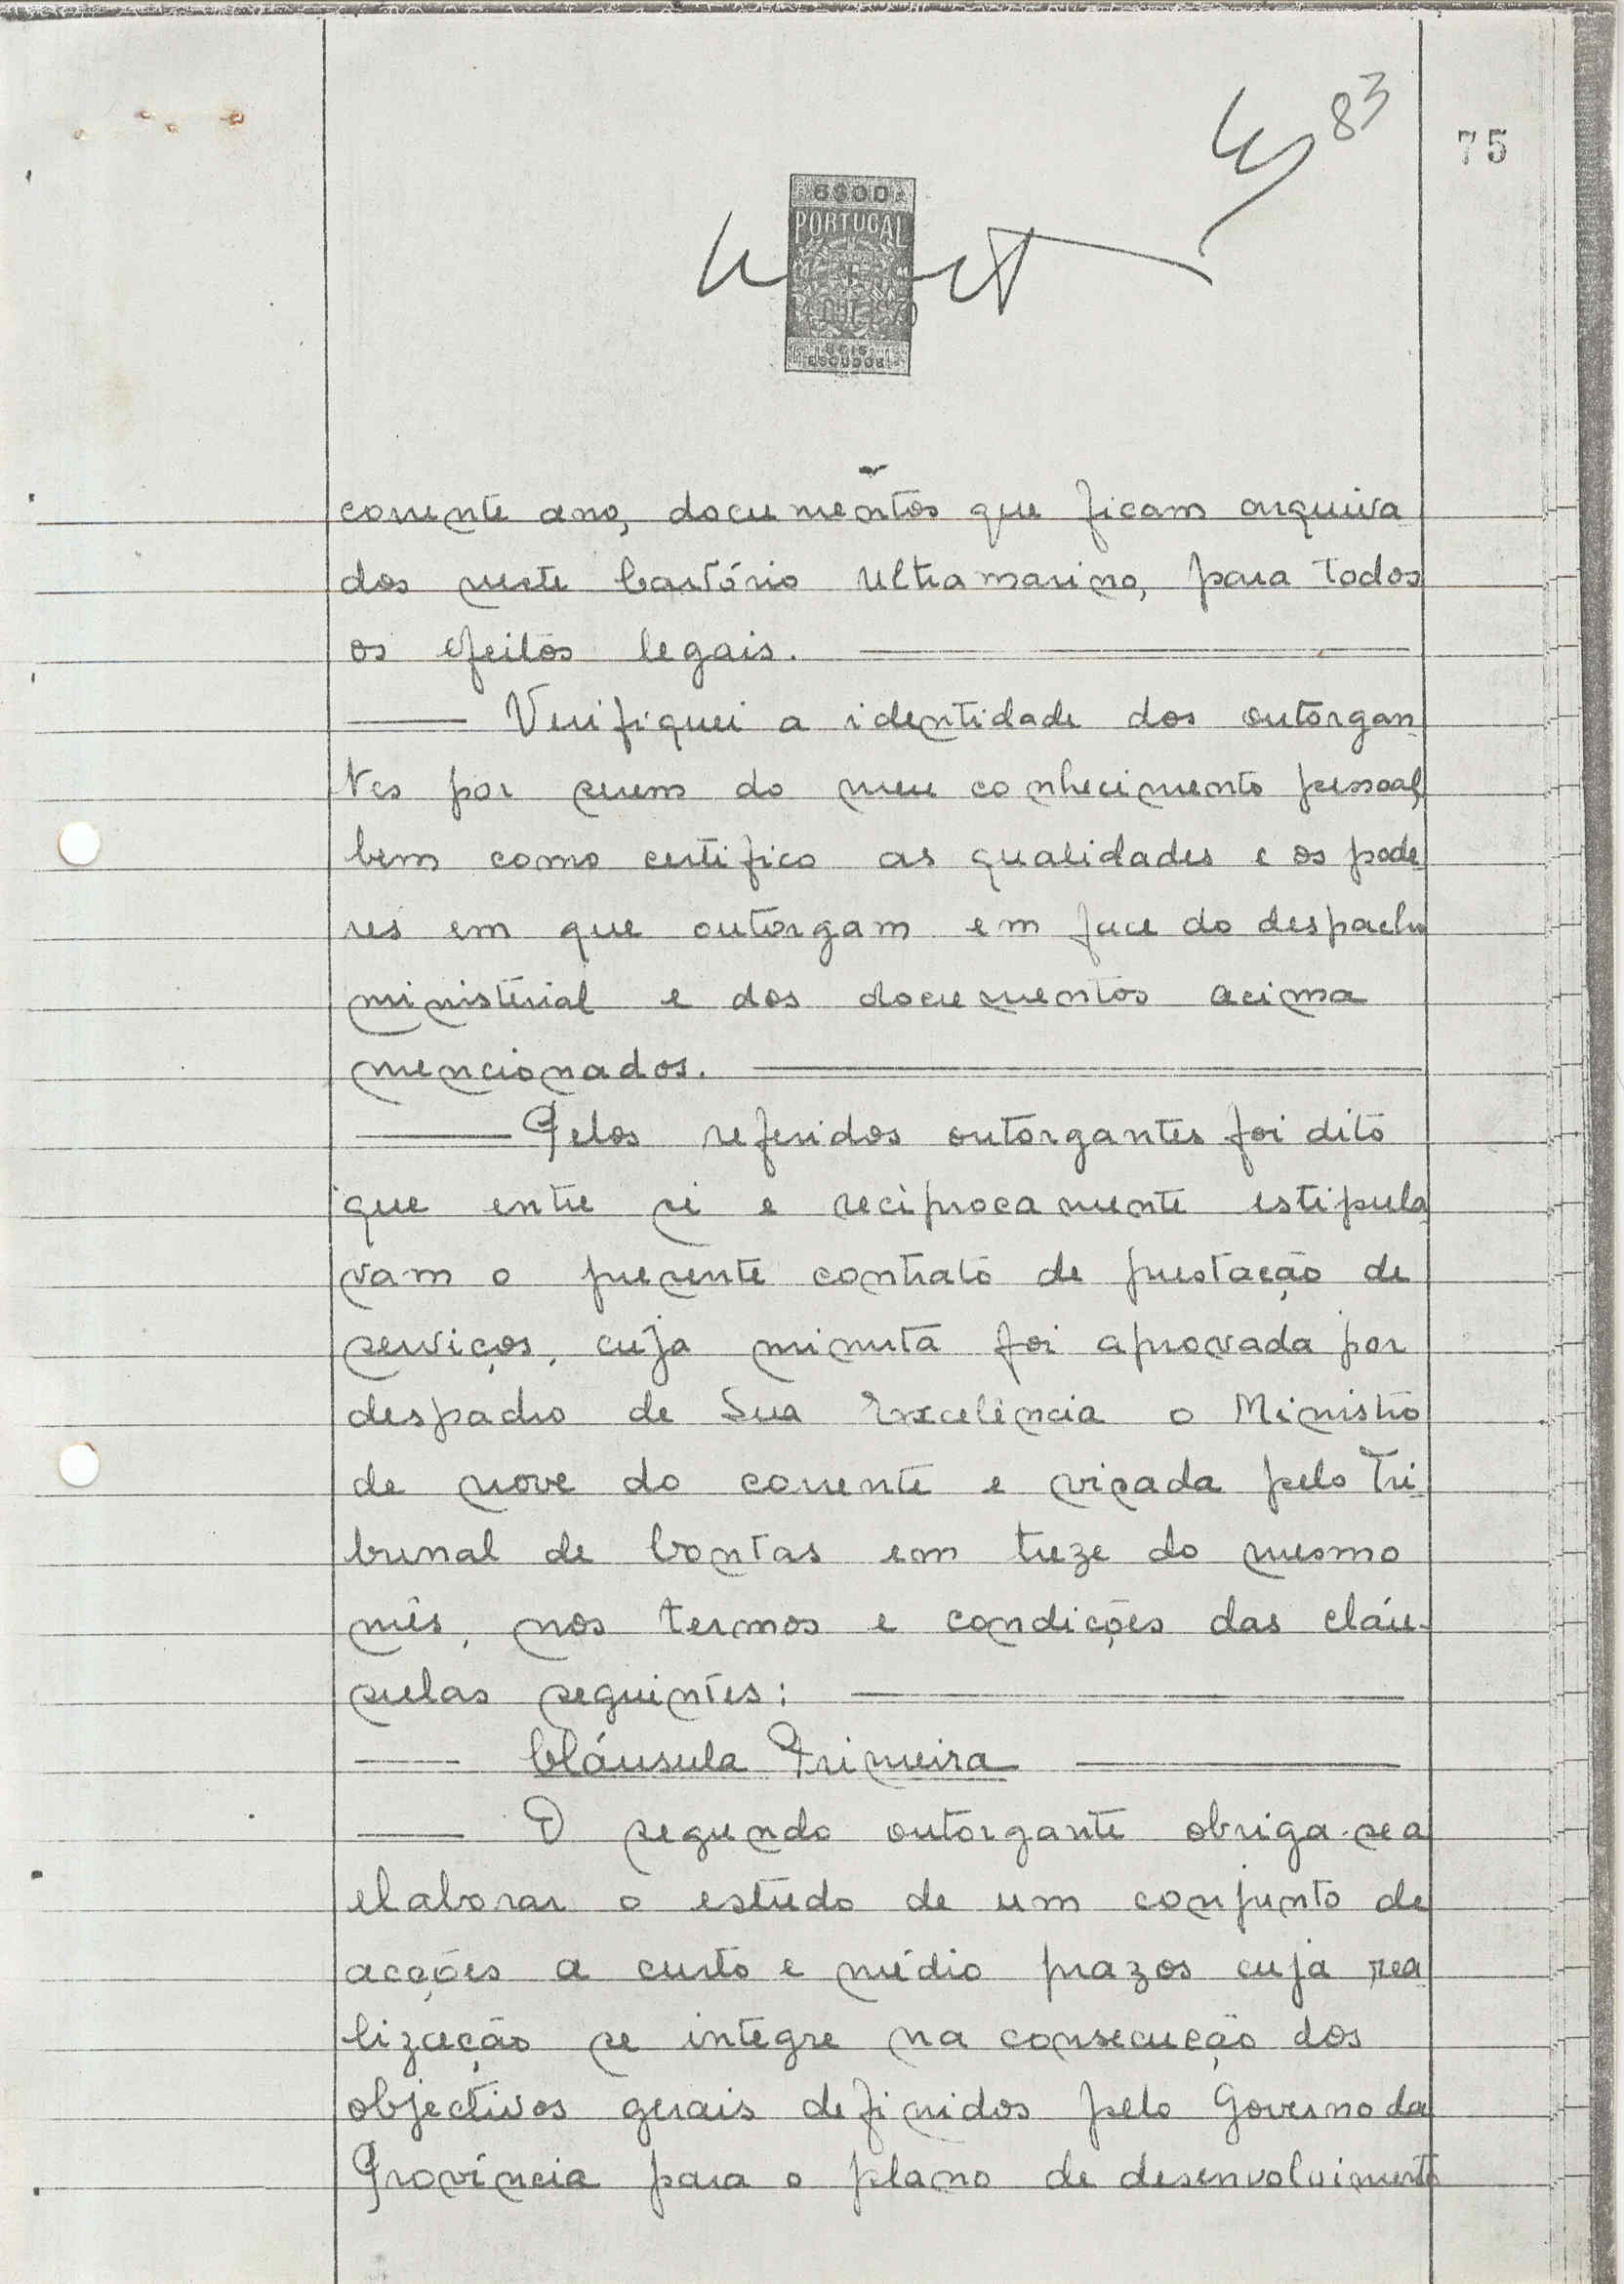 83
75
6$00
PORTUGAL
SEIS
ESCUDOS
corrente ano, documentos que ficam arquiva
dos neste Cartório Ultramarino, para todos
os efeitos legais.
Verifiquei a identidade dos outorgan
tes por serem do meu conhecimento pessoal,
bem como certifico as qualidades e os pode
res em que outorgam em face do despacho
ministerial e dos documentos acima
mencionados.
Pelos referidos outorgantes foi dito
que entre si e recìprocamente estipula
vam o presente contrato de prestação de
serviços, cuja minuta foi aprovada por
despacho de Sua Excelência o Ministro
de nove do corrente e visada pelo Tri
bunal de Contas em treze do mesmo
mês, nos termos e condições das cláu-
sulas seguintes:
Cláusula Primeira
O segundo outorgante obriga-se a
elaborar o estudo de um conjunto de
acções a curto e médio prazos cuja rea
lização se integre na consecução dos
objectivos gerais definidos pelo Governo da
Província para o plano de desenvolvimento